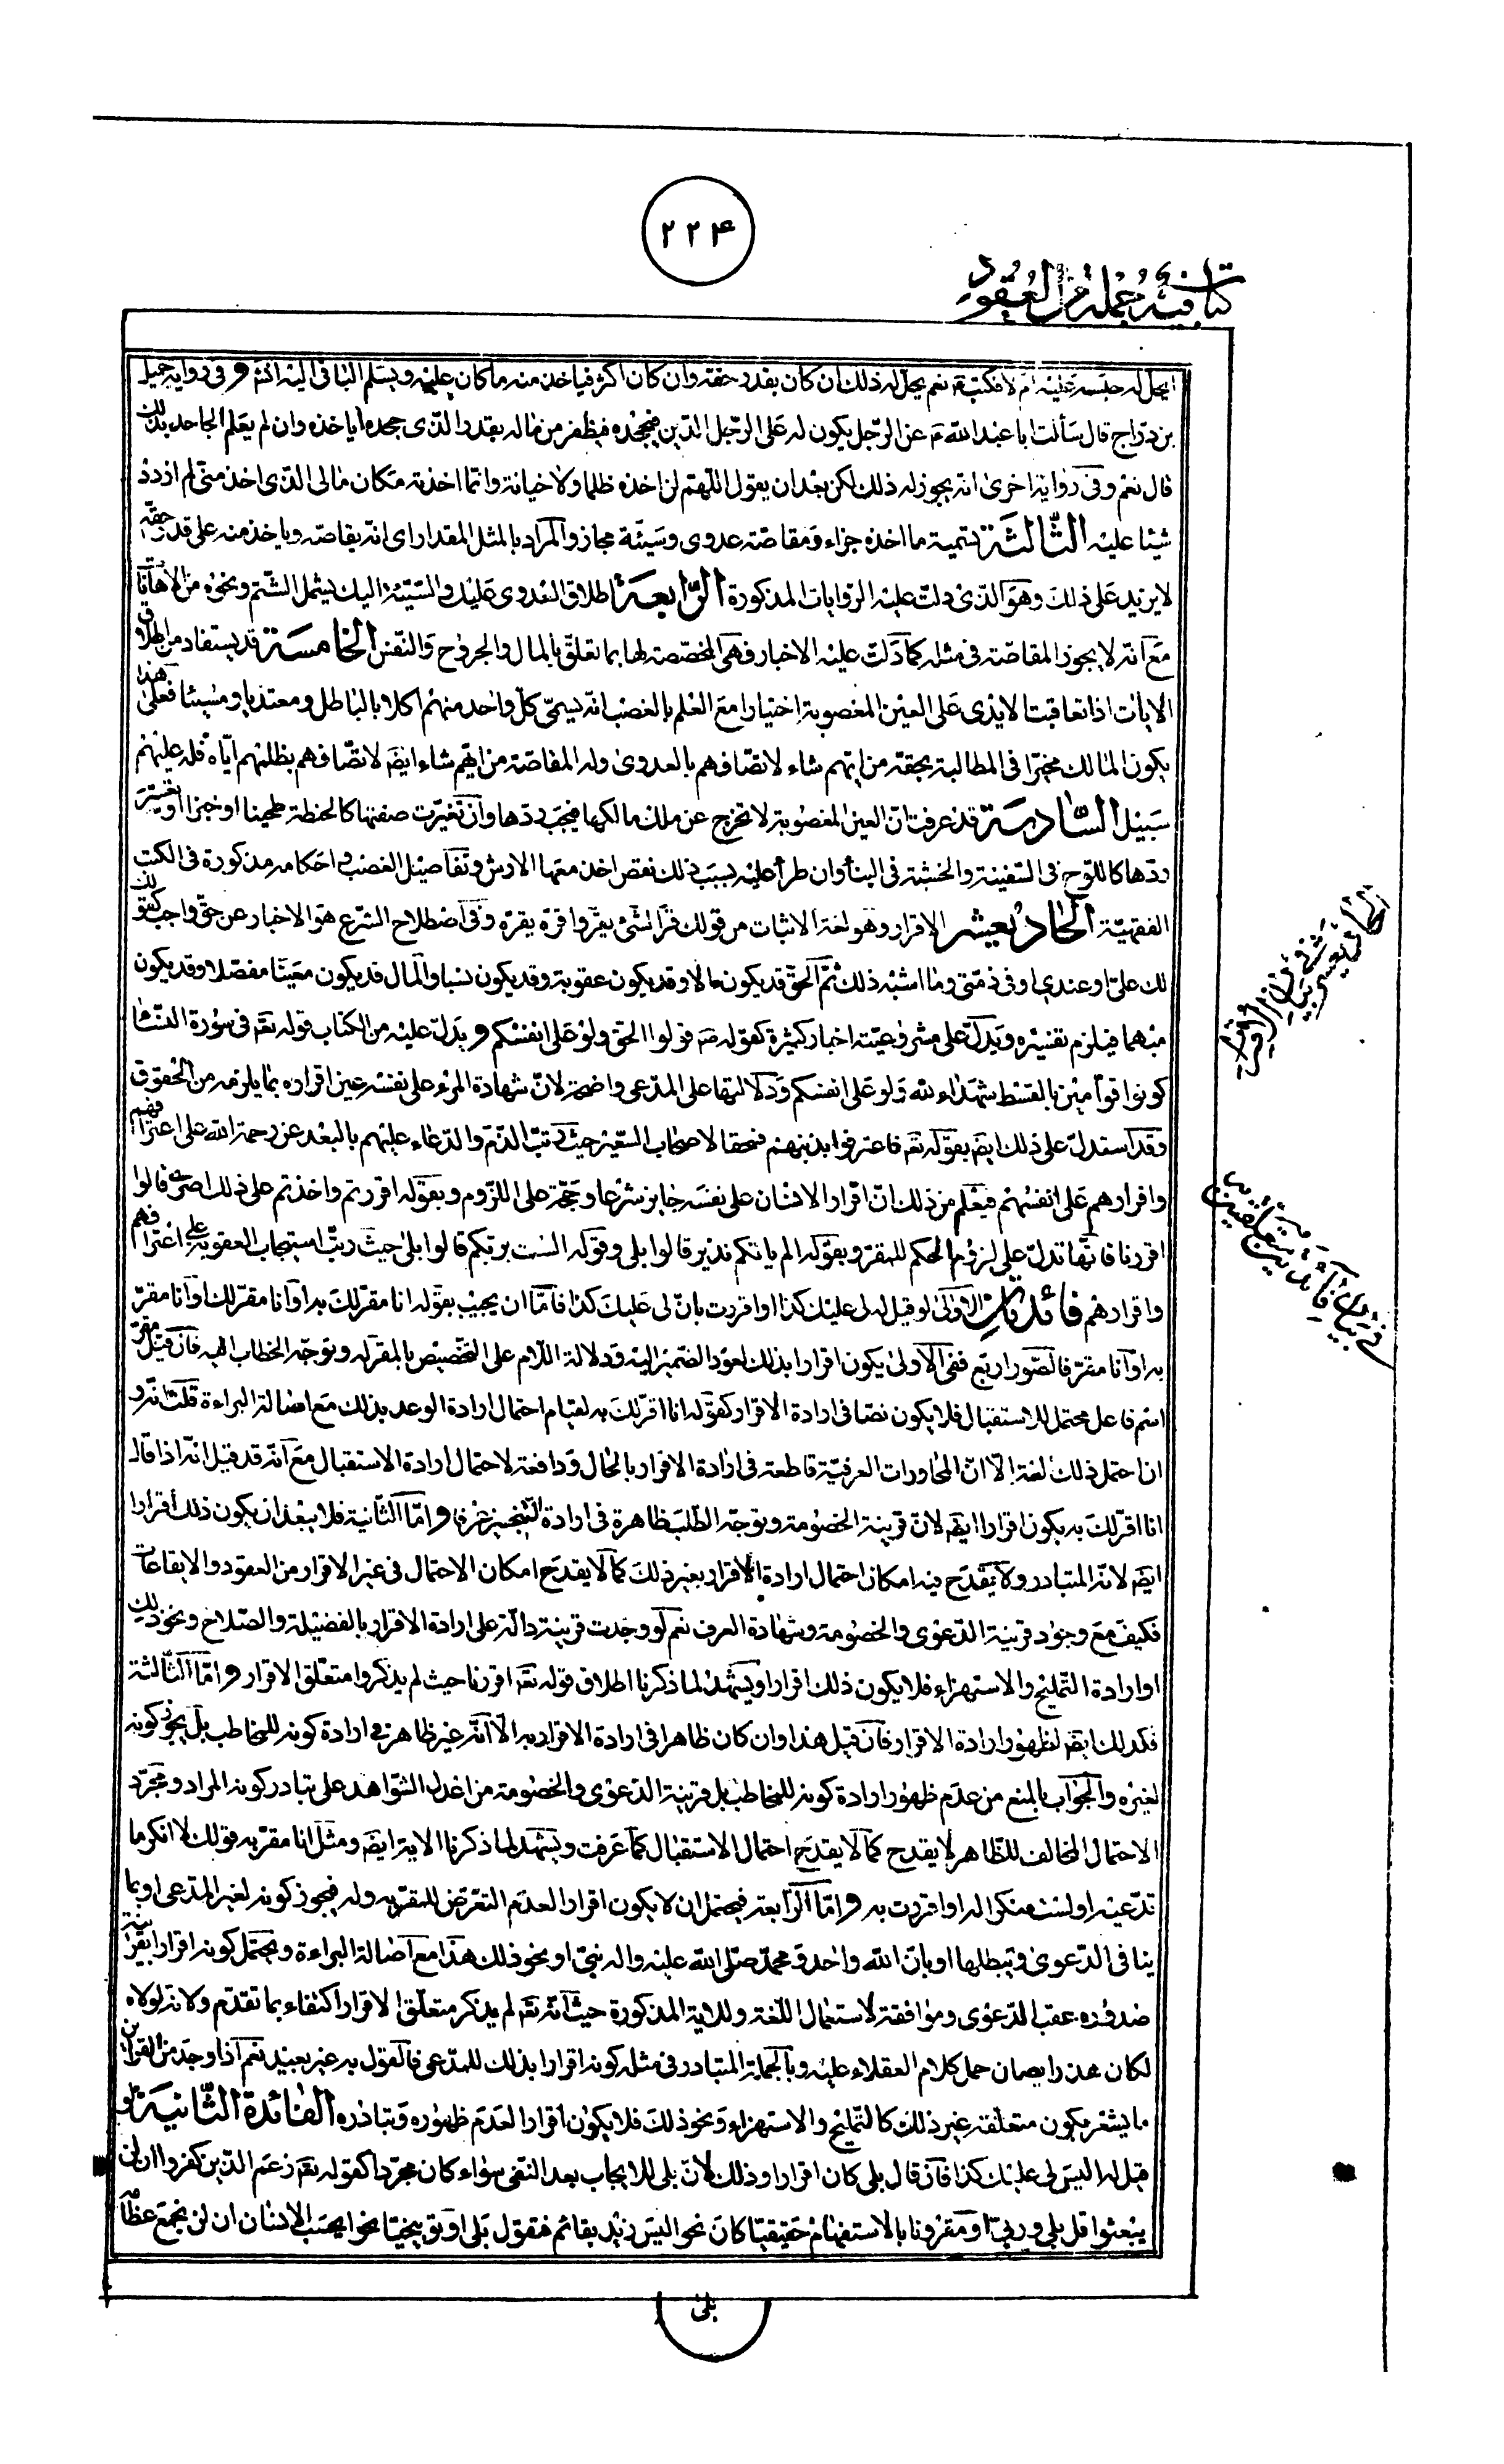 ۲۲۴
كتاب فيه جملة من العقود
ايحل له حبسه عليه ام لا فكتب ع نعم يحل له ذلك ان كان بقدر حقه وان كان اكثر فياخذ منه ما كان عليه ويسلم الباقى اليه انشم وفى رواية جميل
بن دراج قال سألت ابا عبد الله ع عن الرجل يكون له على الرجل الدين فيجحده فيظفر من ماله بقدر الذى جحده أياخذه وان لم يعلم الجاحد بذلك
قال نعم وفى رواية اخرى انه يجوز له ذلك لكن بعد ان يقول اللهم لن اخذه ظلما ولا خيانة وانما اخذته مكان مالى الذى اخذ منى لم ازدد
شيئا عليه الثالثة تسمية ما اخذه جزاء ومقاصة عدوى وسيئة مجاز والمراد بالمثل المقدار اى انه يقاصه وياخذ منه على قدر حقه
لا يزيد على ذلك وهو الذى دلت عليه الروايات المذكورة الرابعة اطلاق العدوى عليك والسيئة اليك يشمل الشتم ونحوه من الاهانات
مع انه لا يجوز المقاصة فى مثله كما دلت عليه الاخبار فهى المخصصة لها بما تعلق بالمال والجروح والنفس الخامسة قد يستفاد من اطلاق
الايات اذا تعاقبت الايدى على العين المغصوبة اختيارا مع العلم بالغصب انه يسمى كل واحد منهم اكلا بالباطل ومعتديا ومسيئا فعلى هذا
يكون المالك مخيرا فى المطالبة بحقه من ايهم شاء لاتصافهم بالعدوى وله المقاصة من ايهم شاء ايضا لاتصافهم بظلمهم اياه فله عليهم
سبيل السادسة قد عرفت ان العين المغصوبة لا تخرج عن ملك مالكها فيجب ردها وان تغيرت صفتها كالحنطة طحينا او خبزا او تعسر
ردها كاللوح فى السفينة والخشبة فى البناء وان طرأ عليه بسبب ذلك نقص اخذ معها الارش وتفاصيل الغصب واحكامه مذكورة فى الكتب
الفقهية الحاديعشر الاقرار وهو لغة الاثبات من قولك قر الشئ يقر واقره يقره وفى اصطلاح الشرع هو الاخبار عن حق واجب كقولك
لك على او عندى او فى ذمتى وما اشبه ذلك ثم الحق قد يكون مالا وقد يكون عقوبة وقد يكون نسبا والمال قد يكون معينا مفصلا وقد يكون
مبهما فيلزم تفسيره ويدل على مشروعيته اخبار كثيرة كقوله ص قولوا الحق ولو على انفسكم ويدل عليه من الكتاب قوله تعم فى سورة النساء
كونوا قوامين بالقسط شهداء لله ولو على انفسكم ودلالتها على المدعى واضحة لان شهادة المرء على نفسه عين اقراره بما يلزمه من الحقوق
وقد استدل على ذلك ايضا بقوله تعم فاعترفوا بذنبهم فسحقا لاصحاب السعير حيث رتب الذم والدعاء عليهم بالبعد عن رحمة الله على اعترافهم
واقرارهم على انفسهم فيعلم من ذلك ان اقرار الانسان على نفسه جايز شرعا وحجة على اللزوم وبقوله اقررتم واخذتم على ذلك اصرى قالوا
اقررنا فانها تدل على لزوم الحكم للمقر وبقوله الم ياتكم نذير قالوا بلى وقوله الست بربكم قالوا بلى حيث رتب استيجاب العقوبة على اعترافهم
واقرارهم فائدتان الاولى لو قيل له لى عليك كذا او اقررت بان لى عليك كذا فاما ان يجيب بقوله انا مقر لك به او انا مقر لك او انا مقر
به او انا مقر فالصور اربع ففى الاولى يكون اقرارا بذلك لعود الضمير اليه ودلالة اللام على التخصيص بالمقر له وتوجه الخطاب اليه فان قيل مقر
اسم فاعل محتمل للاستقبال فلا يكون نصا فى ارادة الاقرار كقوله انا اقر لك به لقيام احتمال ارادة الوعد بذلك مع اصالة البراءة قلت انه و
ان احتمل ذلك لغة الا ان المحاورات العرفية قاطعة فى ارادة الاقرار بالحال ودافعة لاحتمال ارادة الاستقبال مع انه قد قيل انه اذا قال
انا اقر لك به يكون اقرارا ايضا لان قرينة الخصومة وتوجه الطلب ظاهرة فى ارادة التنجيز عرفا واما الثانية فلا يبعد ان يكون ذلك اقرارا
ايضا لانه المتبادر ولا يقدح فيه امكان احتمال ارادة الاقرار بغير ذلك كما لا يقدح امكان الاحتمال فى غير الاقرار من العقود والايقاعات
فكيف مع وجود قرينة الدعوى والخصومة وشهادة العرف نعم لو وجدت قرينة دالة على ارادة الاقرار بالفضيلة والصلاح ونحو ذلك
او ارادة التمليح والاستهزاء فلا يكون ذلك اقرارا ويشهد لما ذكرنا اطلاق قوله تعم اقررنا حيث لم يذكروا متعلق الاقرار واما الثالثة
فكذلك ايضا لظهور ارادة الاقرار فان قيل هذا وان كان ظاهرا فى ارادة الاقرار به الا انه غير ظاهر فى ارادة كونه للمخاطب بل يجوز كونه
لغيره والجواب بالمنع من عدم ظهور ارادة كونه للمخاطب بل قرينة الدعوى والخصومة من اعدل الشواهد على تبادر كونه المراد ومجرد
الاحتمال المخالف للظاهر لا يقدح كما لا يقدح احتمال الاستقبال كما عرفت ويشهد لما ذكرنا الاية ايضا ومثل انا مقر به قولك لا انكر ما
تدعيه او لست منكرا له او اقررت به واما الرابعة فيحتمل ان لا يكون اقرارا لعدم التعرض للمقر به وله فيجوز كونه لغير المدعى او بما
ينافى الدعوى ويبطلها او بان الله واحد ومحمد صلى الله عليه واله نبى او نحو ذلك هذا مع اصالة البراءة ويحتمل كونه اقرارا بقرينة
صدوره عقب الدعوى وموافقة لاستعمال اللغة وللاية المذكورة حيث انه تعم لم يذكر متعلق الاقرار اكتفاء بما تقدم ولانه لولاه
لكان هذرا يصان حمل كلام العقلاء عليه وبالجملة المتبادر فى مثله كونه اقرارا بذلك للمدعى فالقول به غير بعيد نعم اذا وجد من القرائن
ما يشعر بكون متعلقه غير ذلك كالتمليح والاستهزاء ونحو ذلك فلا يكون اقرارا لعدم ظهوره وتبادره الفائدة الثانية لو
قيل له اليس لى عليك كذا فان قال بلى كان اقرارا وذلك لان بلى للايجاب بعد النفى سواء كان مجردا كقوله تعم زعم الذين كفروا ان لن
يبعثوا قل بلى وربى او مقرونا بالاستفهام حقيقيا كان نحو اليس زيد بقائم فتقول بلى او توبيخيا نحو ايحسب الانسان ان لن نجمع عظامه
بلى
الحاديعشر فى بيان الاقرار